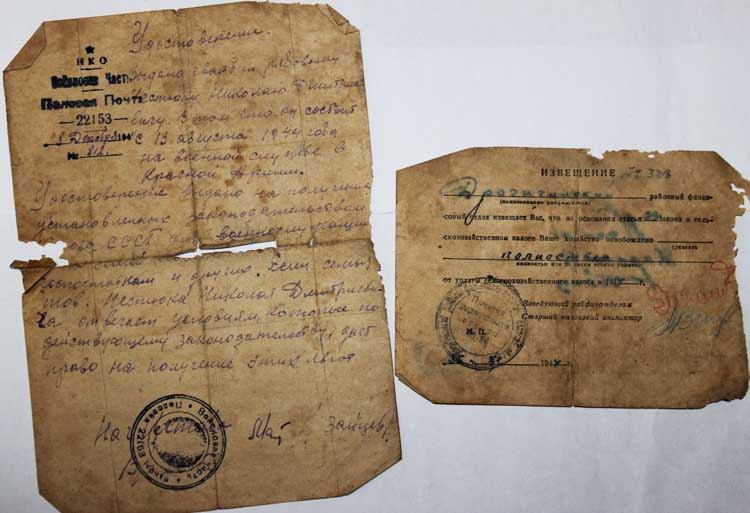 НКО
Войсковая Часть
Полевая Почта
—22153—
8 Декабря 194
№ 812.
Удостоверение.
Выдано гвардии рядовому
Нестюку Николаю Дмитрие-
вичу в том что он состоит
с 13 августа 1944 года
на военной службе в
Красной Армии.
Удостоверение выдано на получение
установленных законодательством
Союза ССР для военнослужащих
и другие. Если семья
Нестюка Николая Дмитриеви-
ча отвечает условиям, которые по
действующему законодательству, дает
право на получение этих льгот
Зайцев
Войсковая часть
Полевая 22153
ИЗВЕЩЕНИЕ № 323
Дрогичинский районный финан-
(наименование райфинотдела)
совый отдел извещает Вас, что на основании статьи Закона о сель-
скохозяйственном налоге Ваше хозяйство освобождено
(указать
полностью
полностью или на какой
от уплаты сельскохозяйственного налога в 194
Заведующий райфинотделом
Старший налоговый инспектор
М. П.
194 г.